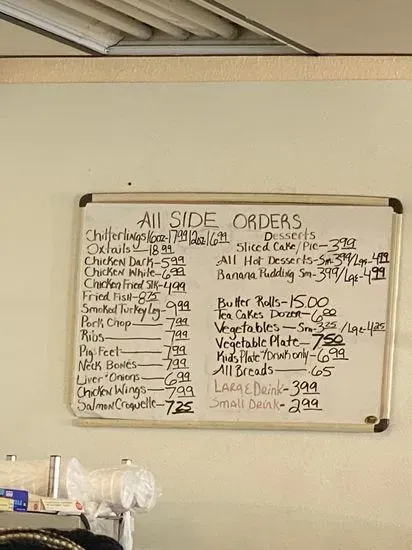 All SIDE ORDERS
Chitterlings 16oz-17.99 12oz 16.99
Oxtails-18.99
Chicken Dark-5.99
Chicken White-6.99
Chicken Fried Stk-4.99
Fried Fish-8.75
Smoked Turkey Leg-9.99
Pork Chop-7.99
Ribs-7.99
Pig Feet-7.99
Neck Bones-7.99
Liver+Onions-6.99
Chicken Wings-7.99
Salmon Croquelle-7.25
Desserts
Sliced Cake/Pie-3.99
All Hot Desserts-Sm-3.99/Lge-4.99
Banana Pudding Sm-3.99/Lge-4.99
Butter Rolls-15.00
Tea Cakes Dozen-6.00
Vegetables-Sm-3.25/Lge-4.25
Vegetable Plate-7.50
Kids Plate+Drink only-6.99
All Breads-.65
LARGE Drink-3.99
Small Drink-2.99